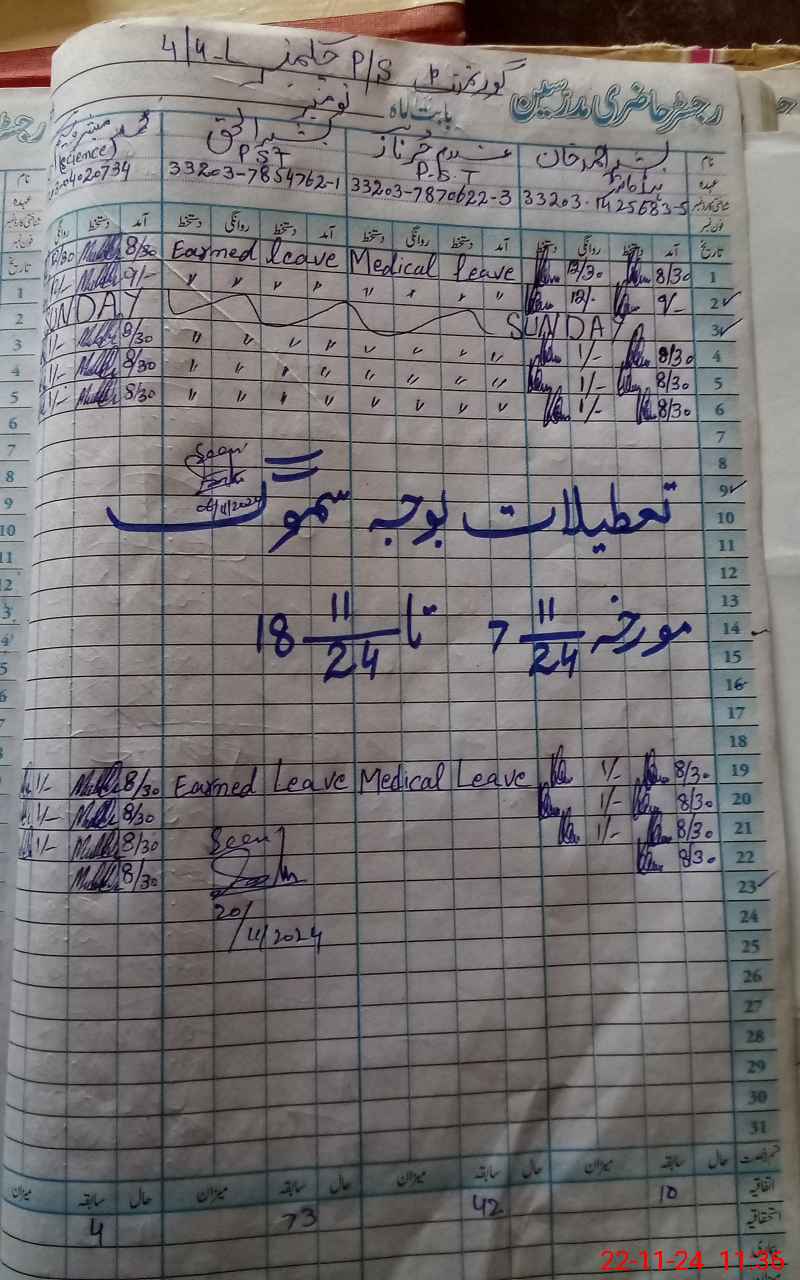 گورنمنٹ P/S 4/4-L
رجسٹر حاضری مدرسین بابت ماہ نومبر
نام بشیر احمد خان
عہدہ P.S.T PST (Science)
33203-1425683-5 33203-7870622-3 33203-7854762-1 04020734
تاریخ آمد دستخط روانگی دستخط آمد دستخط روانگی دستخط آمد دستخط روانگی دستخط آمد دستخط روانگی
1 8/30 12/30 Medical leave Earned leave 8/30 12/30
2 9/- 12/- " " " " " " " " 9/-
3 SUNDAY SUNDAY
4 8/30 1/- " " " " " " " " 8/30 1/-
5 8/30 1/- " " " " " " " " 8/30 1/-
6 8/30 1/- " " " " " " " " 8/30 1/-
7
8 Seen
9
10 تعطیلات بوجہ سموگ
11
12
13
14 مورخہ 7 11/24 تا 18 11/24
15
16
17
18
19 8/30 1/- Medical Leave Earned Leave 8/30 1/-
20 8/30 1/- 8/30 1/-
21 8/30 1/- Seen 8/30 1/-
22 8/30 8/30
23
24 20/11/2024
25
26
27
28
29
30
31
حال سابقہ میزان حال سابقہ میزان حال سابقہ میزان حال سابقہ میزان
اتفاقیہ 10 42 73 4
استحقاقیہ
22-11-24 11:36